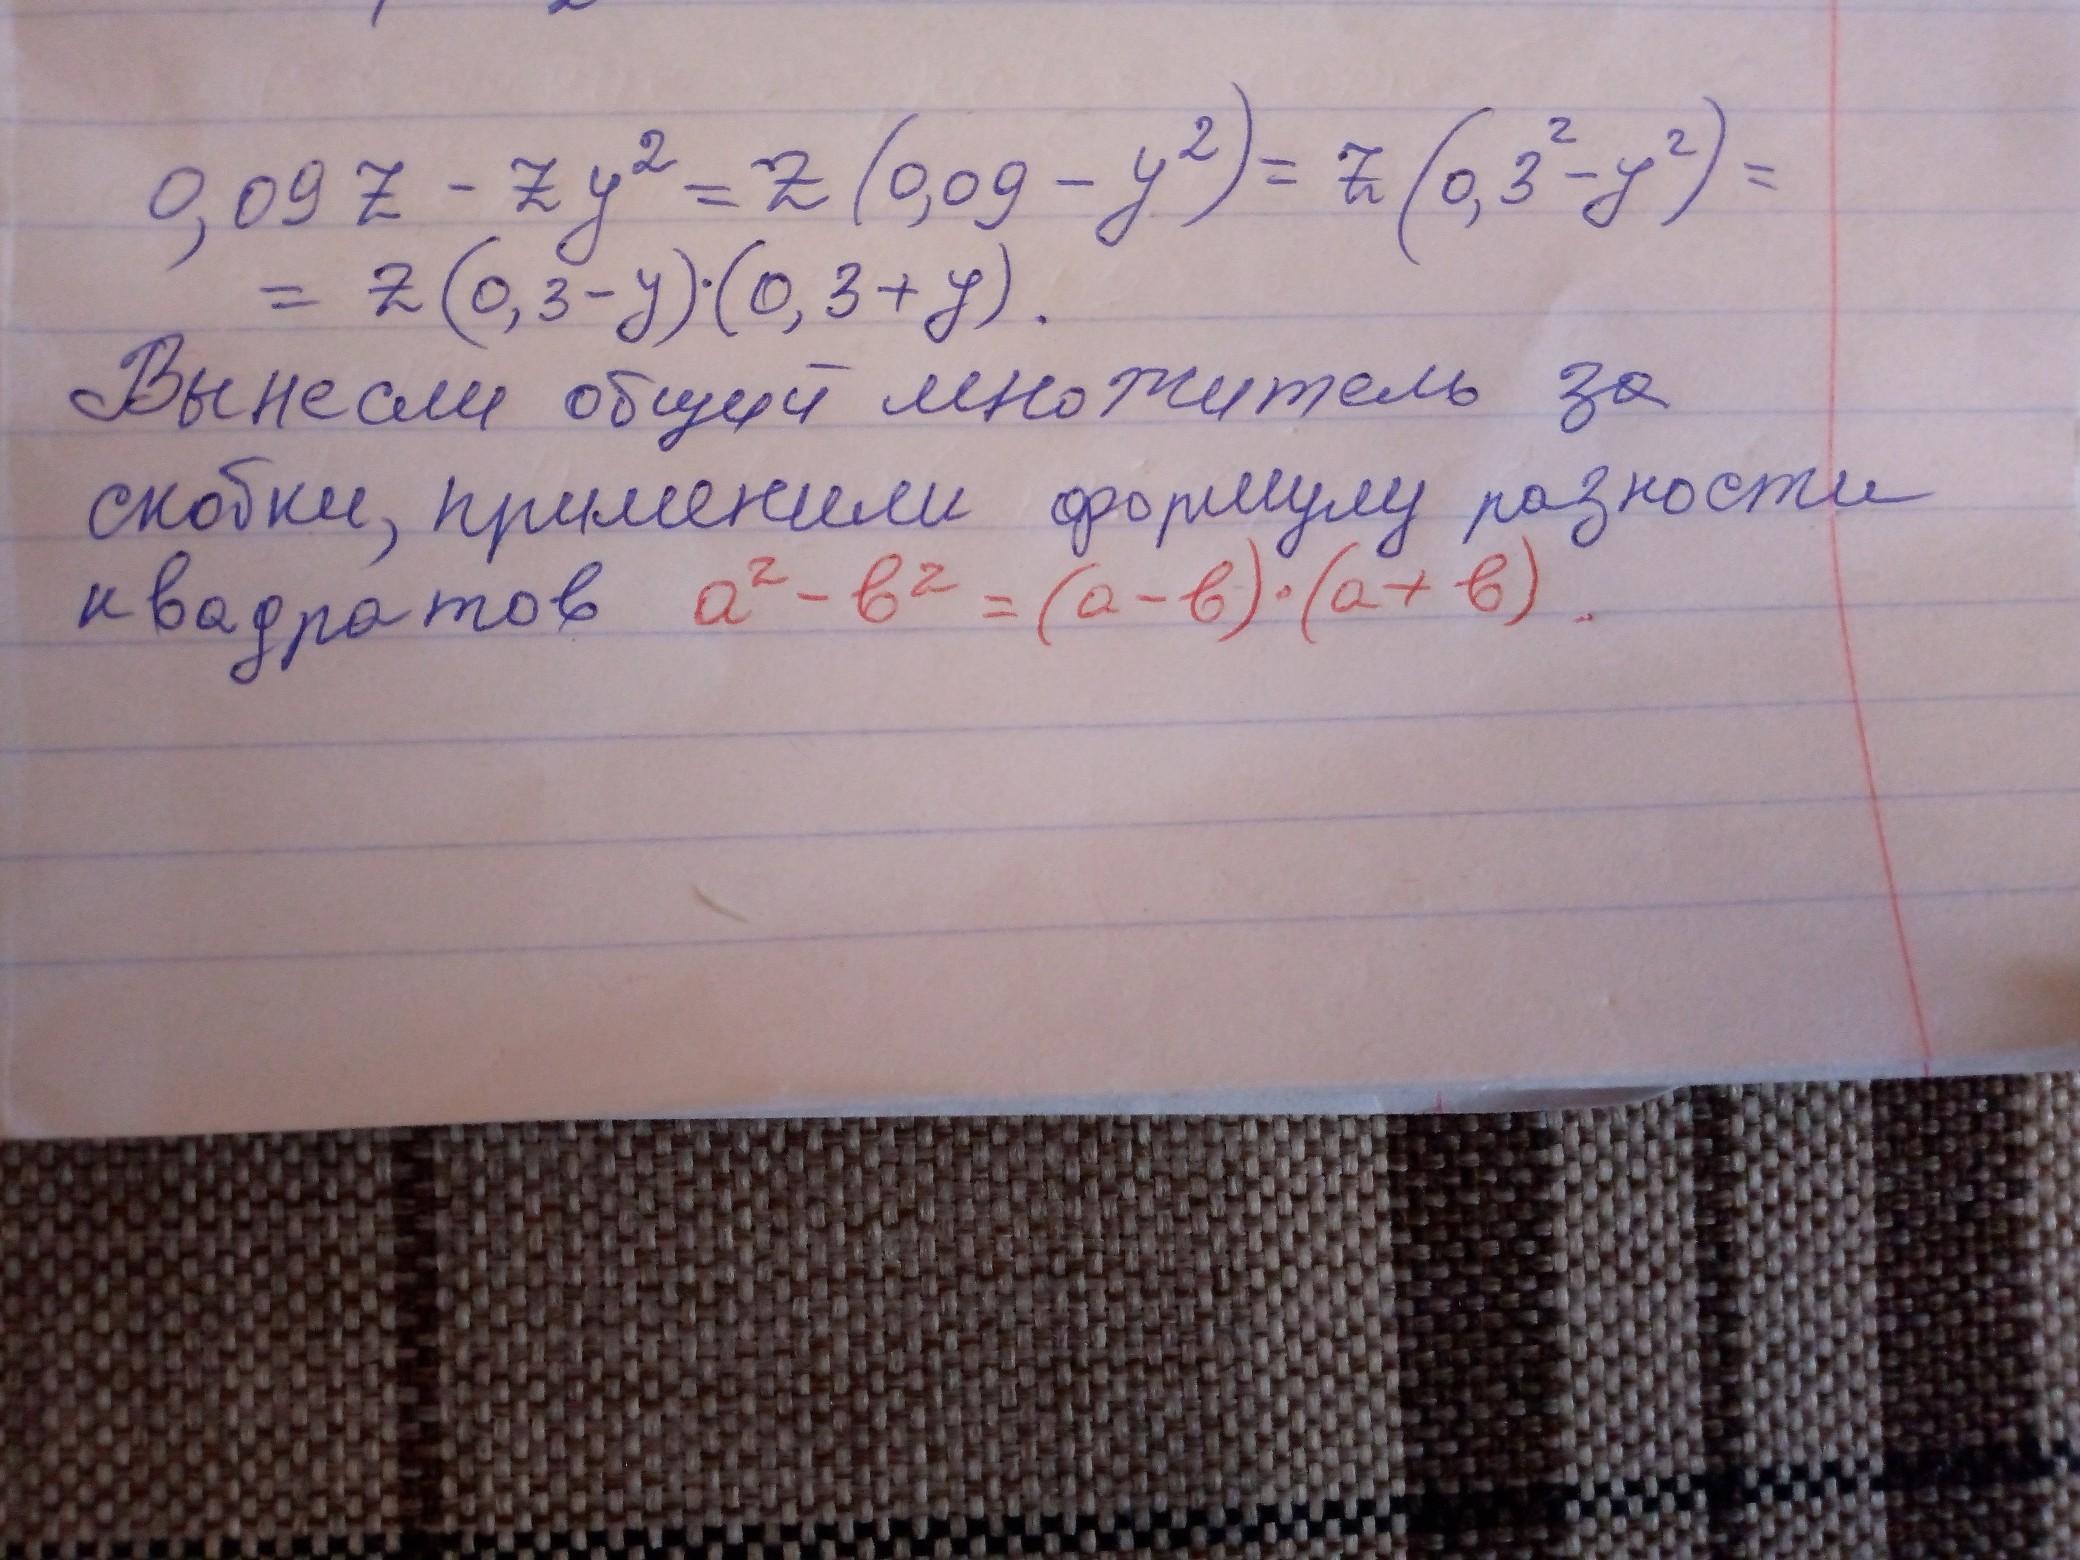 0,09z - zy² = z(0,09 - y²) = z(0,3² - y²) =
= z(0,3 - y)·(0,3 + y).
Вынесли общий множитель за
скобки, применили формулу разности
квадратов a² - в² = (a - в)·(a + в).